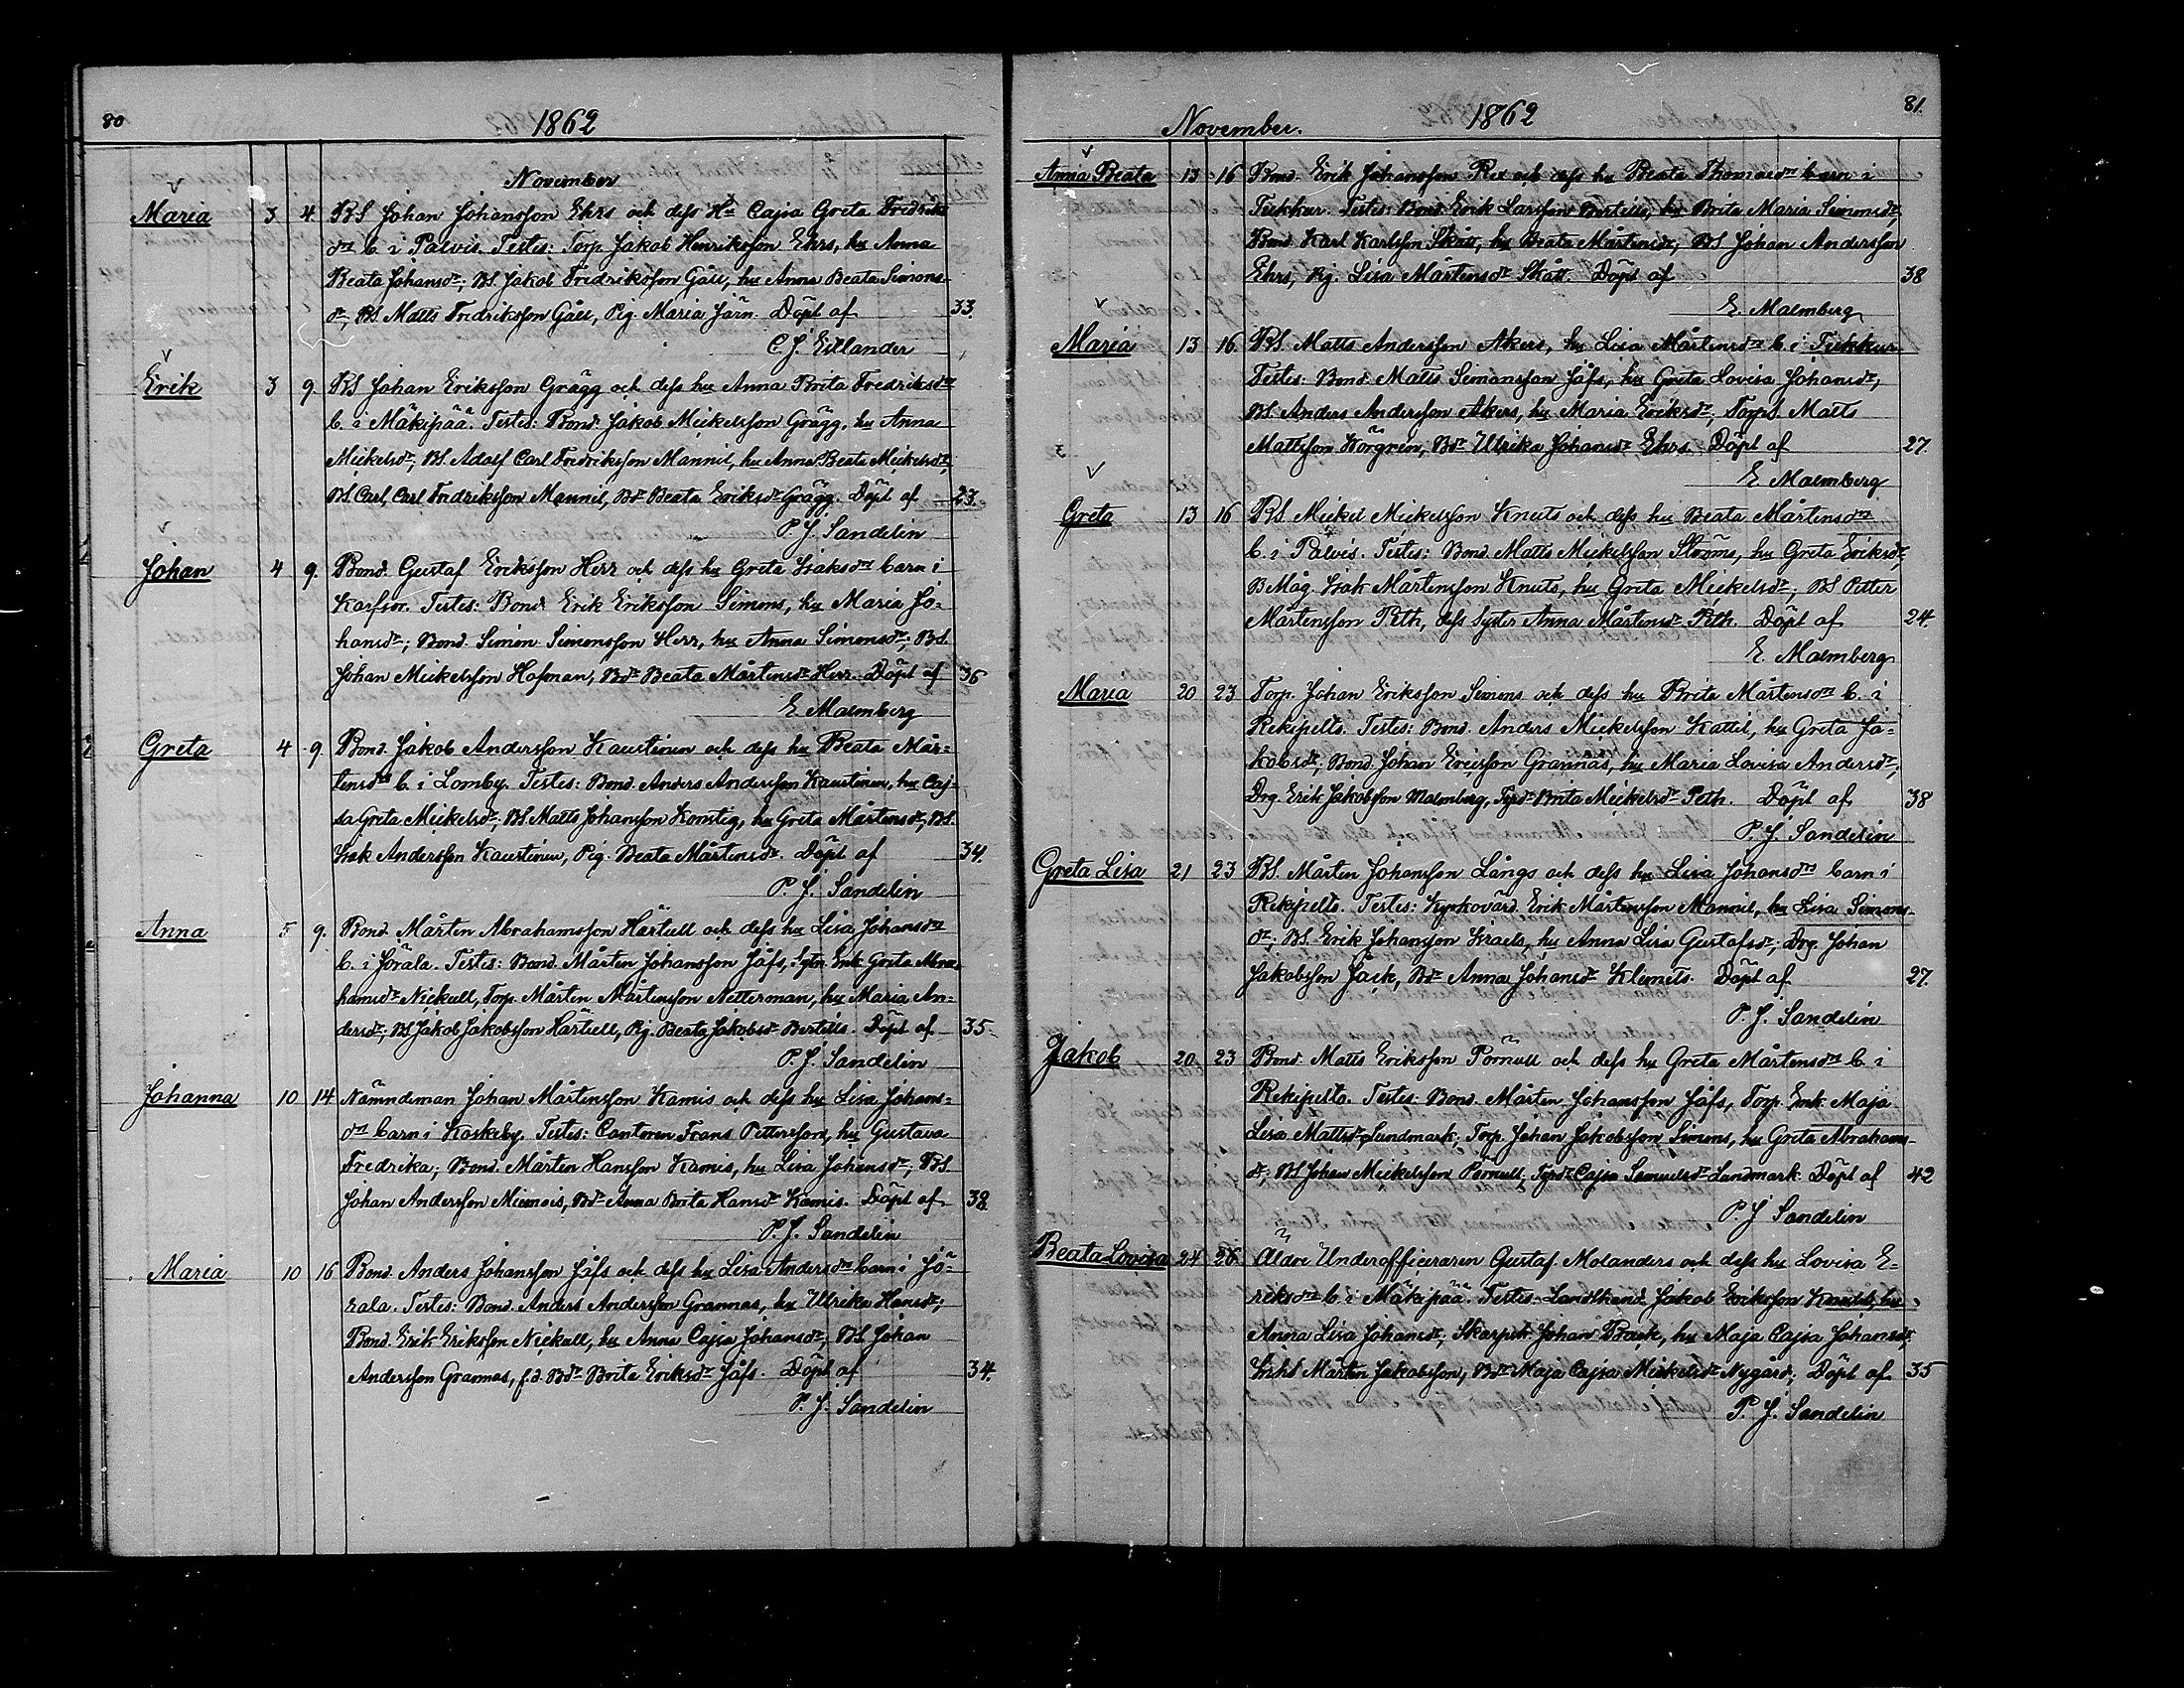 80
1862
November
Maria 3 4. BS Johan Johansson Ehrs och dess Hu Cajsa Greta Fredriks
dr b. i Palvis. Testes: Torp. Jakob Henriksson Ehrs, hu Anna
Beata Johansdr; BS. Jakob Fredriksson Gåll, hu Anna Beata Simons-
dr, BS. Matts Fredriksson Gåll, Pig. Maria Järn. Döpt af 33.
C. J. Eillander
Erik 3 9. BS Johan Eriksson Grägg och dess hu Anna Brita Fredriksdr
b. i Mäkipää. Testes: Bond. Jakob Mickelsson Grägg, hu Anna
Mickelsdr; BS. Adolf Carl Fredriksson Mannil, hu Anna Beata Mickelsdr,
BS. Carl Carl Fredriksson Mannil, Bdr Beata Eriksdr Grägg. Döpt af 23.
P. J. Sandelin
Johan 4 9. Bond. Gustaf Eriksson Herr och dess hu Greta Isaksdr barn i
Karfsor. Testes: Bond. Erik Eriksson Simons, hu Maria Jo-
hansdr; Bond. Simon Simonsson Herr, hu Anna Simonsdr; BS.
Johan Mickelsson Hofman, Bdr Beata Mårtensdr Herr. Döpt af 36
E. Malmberg
Greta 4 9. Bond. Jakob Andersson Kaustinen och dess hu Beata Mår-
tensdr b. i Lomby. Testes: Bond. Anders Andersson Kaustinen, hu Caj-
sa Greta Mickelsdr; BS. Matts Johansson Konstig, hu Greta Mårtensdr; BS.
Isak Andersson Kaustinen, Pig. Beata Mårtensdr. Döpt af 34.
P. J. Sandelin
Anna 5 9. Bond. Mårten Abrahamsson Härtull och dess hu Lisa Johansdr
b. i Jörala. Testes: Bond. Mårten Johansson Jåfs, Sytn. Enk. Greta Abra-
hamsdr Nickull, Torp. Mårten Mårtensson Netterman, hu Maria An-
dersdr; BS Jakob Jakobsson Härtull, Pig. Beata Jakobsdr Bertills. Döpt af 35
P. J. Sandelin
Johanna 10 14 Nämndeman Johan Mårtensson Kamis och dess hu Lisa Johans-
dr barn i Koskeby. Testes: Cantoren Frans Pettersson, hu Gustava
Fredrika; Bond. Mårten Hansson Kamis, hu Lisa Johansdr; BS
Johan Andersson Miemois, Bdr Anna Brita Hansdr Kamis. Döpt af 38.
P. J. Sandelin
Maria 10 16 Bond. Anders Johansson Jåfs och dess hu Lisa Andersdr barn i Jö-
rala. Testes: Bond. Anders Andersson Grannas, hu Ulrika Hansdr;
Bond. Erik Eriksson Nickull, hu Anna Cajsa Johansdr; BS Johan
Andersson Grannas, f.d. Bdr Brita Eriksdr Jåfs. Döpt af 34.
P. J. Sandelin
81.
November. 1862
Anna Beata 13 16 Bond. Erik Johansson Rex och dess hu Beata Thomasdr barn i
Tuckur. Testes: Bond. Erik Larsson Bertills, hu Brita Maria Simonsdr,
Bond. Karl Karlsson Skått, hu Beata Mårtensdr, BS Johan Andersson
Ehrs, Pig. Lisa Mårtensdr Skått. Döpt af 38
E. Malmberg
Maria 13 16 BS. Matts Andersson Akers, hu Lisa Mårtensdr b. i Tukkur
Testes: Bond. Matts Simonsson Jåfs, hu Greta Lovisa Johansdr,
BS. Anders Andersson Akers, hu Maria Eriksdr; TorpS. Matts
Mattsson Korgrén, Bdr Ulrika Johansdr Ehrs. Döpt af 27.
E. Malmberg
Greta 13 16 BS. Mickel Mickelsson Knuts och dess hu Beata Mårtensdr
b. i Palvis. Testes: Bond. Matts Mickelsson Ströms, hu Greta Eriksdr,
BMåg. Isak Mårtensson Knuts, hu Greta Mickelsdr; BS Petter
Mårtensson Peth, dess syster Anna Mårtensdr Peth. Döpt af 24.
E. Malmberg
Maria 20 23 Torp. Johan Eriksson Simons och dess hu Brita Mårtensdr b. i
Rekipelto. Testes: Bond. Anders Mickelsson Kattil, hu Greta Ja-
kobsdr; Bond. Johan Ericsson Grannäs, hu Maria Lovisa Andersdr;
Drg. Erik Jakobsson Malmberg, Tpdr Brita Mickelsdr Peth. Döpt af 38
P. J. Sandelin
Greta Lisa 21 23 BS. Mårten Johansson Långs och dess hu Lisa Johansdr barn i
Rekipelto. Testes: Kyrkovärd. Erik Mårtensson Mannil, hu Lisa Simons-
dr; BS. Erik Johansson Israels, hu Anna Lisa Gustafsdr; Drg. Johan
Jakobsson Jåck, Bdr Anna Johansdr Klemets. Döpt af 27.
P. J. Sandelin
Jakob 20 23 Bond. Matts Eriksson Pörnull och dess hu Greta Mårtensdr b. i
Rekipelto. Testes: Bond. Mårten Johansson Jåfs, Torp. Enk. Maja
Lisa Mattsdr Lundmark; Torp. Johan Jakobsson Simons, hu Greta Abrahams-
dr; BS Johan Mickelsson Pörnull, Tpdr Cajsa Samuelsdr Landmark. Döpt af 42
P. J. Sandelin
Beata Lovisa 24 26 Äldre Underofficeraren Gustaf Molanders och dess hu Lovisa E-
riksdr b. i Mäkipää. Testes: Landtkand. Jakob Eriksson hu
Anna Lisa Johansdr; Skarpsk. Johan Rask, hu Maja Cajsa Johansdr,
Mårten Jakobsson, Bdr Maja Cajsa Mickelsdr Nygård; Döpt af 35
P. J. Sandelin